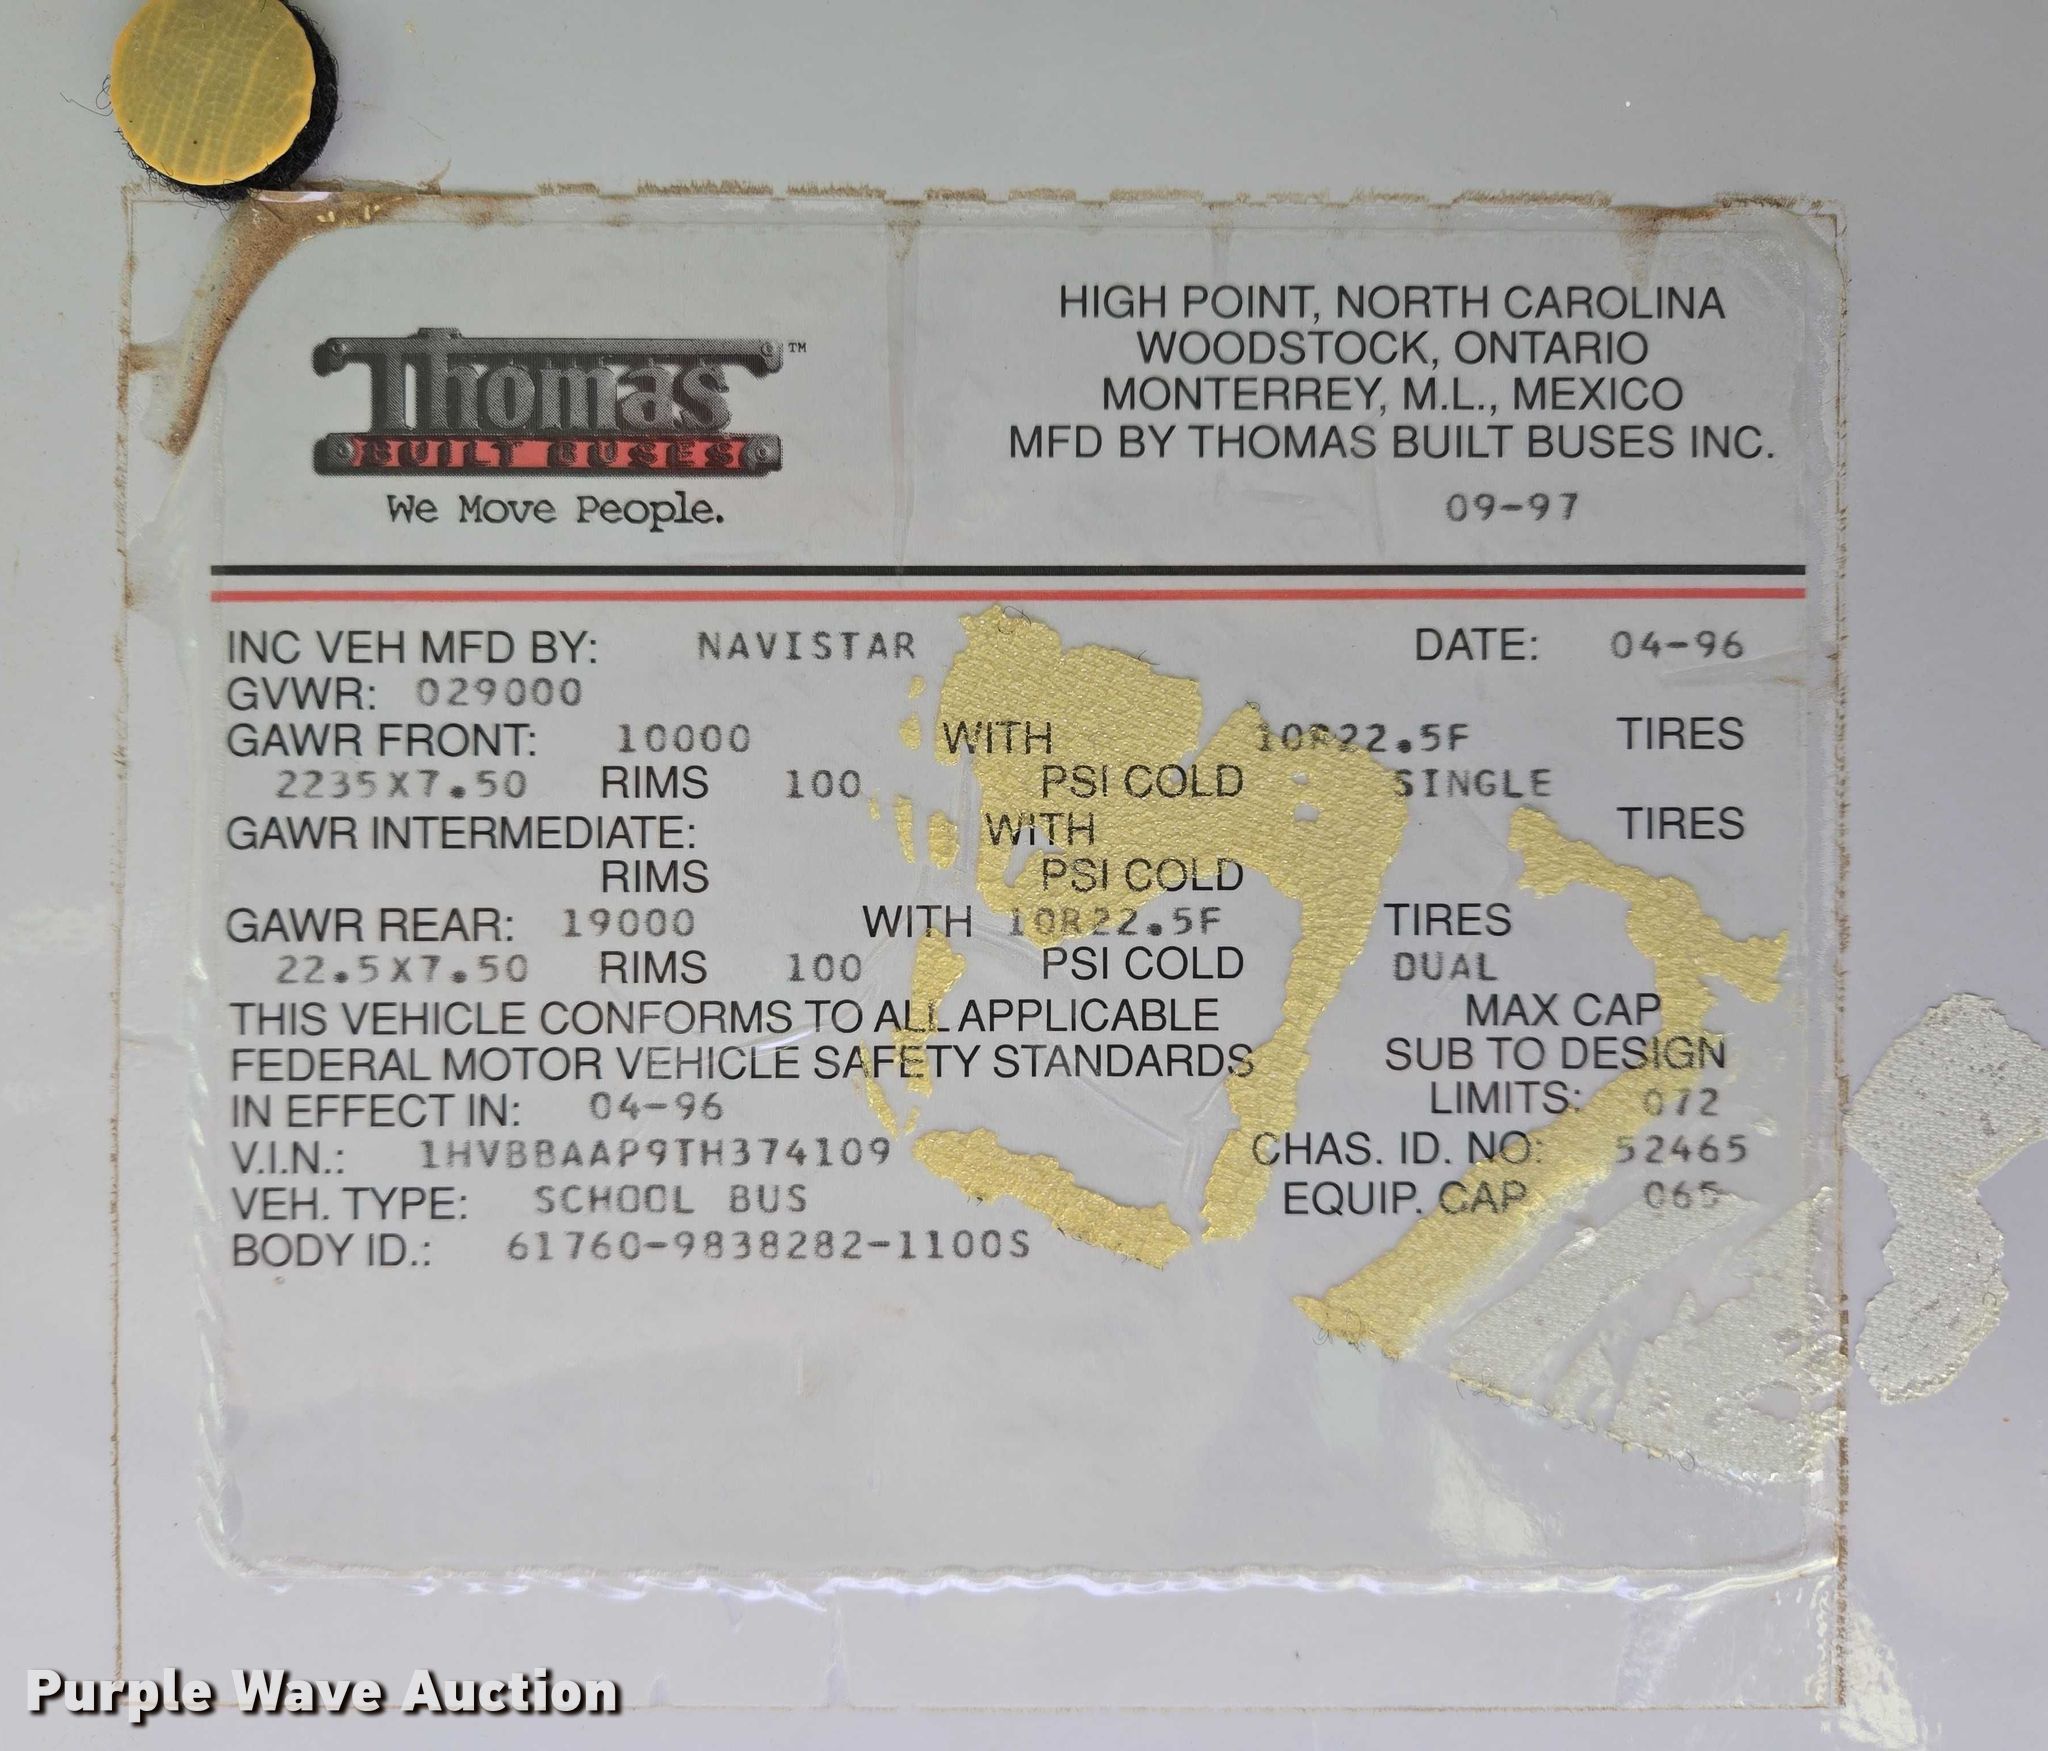 Thomas TM
BUILT BUSES
We Move People.
HIGH POINT, NORTH CAROLINA
WOODSTOCK, ONTARIO
MONTERREY, M.L., MEXICO
MFD BY THOMAS BUILT BUSES INC.
09-97
INC VEH MFD BY: NAVISTAR DATE: 04-96
GVWR: 029000
GAWR FRONT: 10000 WITH 10R22.5F TIRES
2235X7.50 RIMS 100 PSI COLD SINGLE
GAWR INTERMEDIATE: WITH TIRES
RIMS PSI COLD
GAWR REAR: 19000 WITH 10R22.5F TIRES
22.5X7.50 RIMS 100 PSI COLD DUAL
THIS VEHICLE CONFORMS TO ALL APPLICABLE MAX CAP
FEDERAL MOTOR VEHICLE SAFETY STANDARDS SUB TO DESIGN
IN EFFECT IN: 04-96 LIMITS: 072
V.I.N.: 1HVBBAAP9TH374109 CHAS. ID. NO: 52465
VEH. TYPE: SCHOOL BUS EQUIP. CAP 065
BODY ID.: 61760-9838282-1100S
Purple Wave Auction